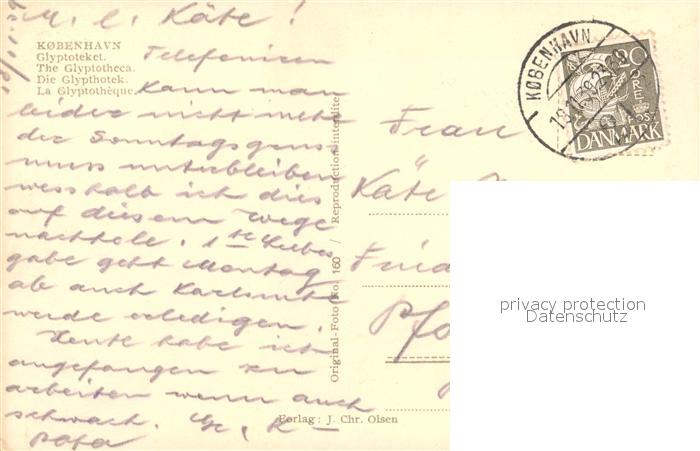 M. l. Käte!
KØBENHAVN
Glyptoteket.
The Glyptotheca.
Die Glyptothek.
La Glyptothèque.
Telefonieren
kann man
leider nicht mehr
der Sonntagsgruss
muss unterbleiben
weshalb ich dies
auf diesem Wege
nachhole. 1te
gabe geht Montag
ab auch
werde erledigen.
Heute habe ich
angefangen zu
arbeiten wenn auch
schwach. Gr. K
Papa
Original-Foto No. 160 / Reproduction interdite
Forlag: J. Chr. Olsen
Frau
Käte
KØBENHAVN
20
ØRE
DANMARK
privacy protection
Datenschutz